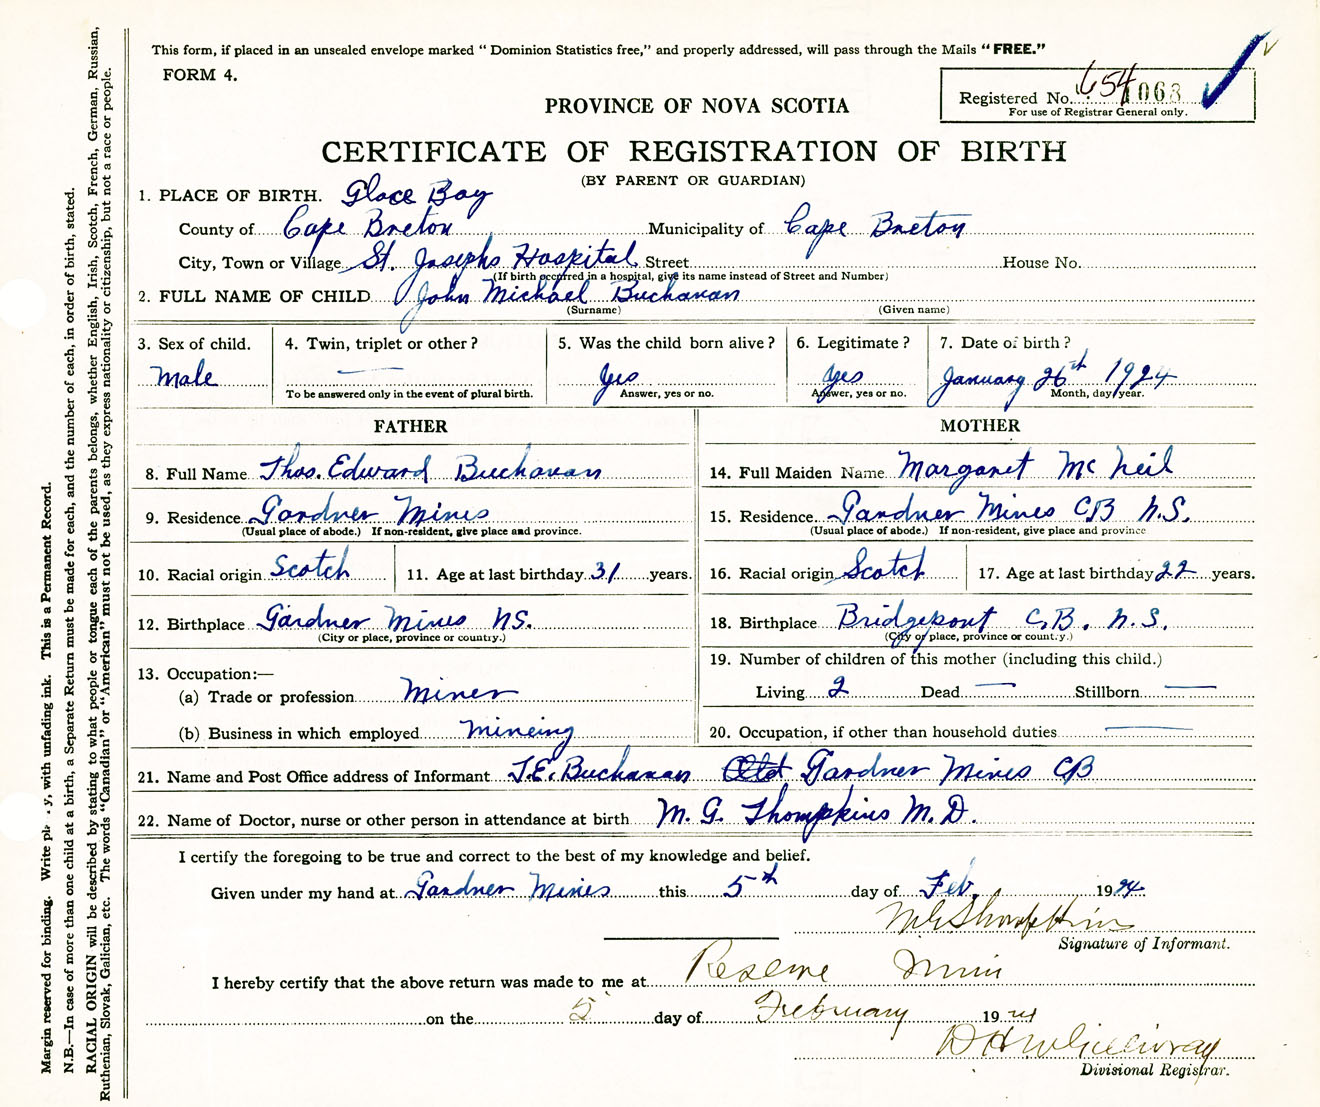 This form, if placed in an unsealed envelope marked “ Dominion Statistics free,” and properly addressed, will pass through the Mails “ FREE.”
FORM 4.
Registered No. 654 1063
For use of Registrar General only.
PROVINCE OF NOVA SCOTIA
CERTIFICATE OF REGISTRATION OF BIRTH
(BY PARENT OR GUARDIAN)
1. PLACE OF BIRTH. Glace Bay
County of Cape Breton Municipality of Cape Breton
City, Town or Village St. Josephs Hospital Street House No.
(If birth occurred in a hospital, give its name instead of Street and Number)
2. FULL NAME OF CHILD John Michael Buchanan
(Surname) (Given name)
3. Sex of child. 4. Twin, triplet or other ? 5. Was the child born alive ? 6. Legitimate ? 7. Date of birth ?
Male — Yes Yes January 26th 1924
To be answered only in the event of plural birth. Answer, yes or no. Answer, yes or no. Month, day/year.
FATHER MOTHER
8. Full Name Thos. Edward Buchanan 14. Full Maiden Name Margaret McNeil
9. Residence Gardner Mines 15. Residence Gardner Mines CB N.S.
(Usual place of abode.) If non-resident, give place and province. (Usual place of abode.) If non-resident, give place and province
10. Racial origin Scotch 11. Age at last birthday 31 years. 16. Racial origin Scotch 17. Age at last birthday 22 years.
12. Birthplace Gardner Mines NS. 18. Birthplace Bridgeport C.B. N.S.
(City or place, province or country.) (City or place, province or country.)
19. Number of children of this mother (including this child.)
13. Occupation:—
(a) Trade or profession Miner Living 2 Dead — Stillborn —
(b) Business in which employed Mineing 20. Occupation, if other than household duties —
21. Name and Post Office address of Informant T.E. Buchanan Gardner Mines CB
22. Name of Doctor, nurse or other person in attendance at birth M. G. Thompkins M.D.
I certify the foregoing to be true and correct to the best of my knowledge and belief.
Given under my hand at Gardner Mines this 5th day of Feb. 1924
MG Thompkins
Signature of Informant.
I hereby certify that the above return was made to me at Reserve Mines
on the 5 day of February 1924
D H McGillivray
Divisional Registrar.
Margin reserved for binding. Write y, with unfading ink. This is a Permanent Record.
N.B.—In case of more than one child at a birth, a Separate Return must be made for each, and the number of each, in order of birth, stated.
RACIAL ORIGIN will be described by stating to what people or tongue each of the parents belongs, whether English, Irish, Scotch, French, German, Russian,
Ruthenian, Slovak, Galician, etc. The words “Canadian” or “American” must not be used, as they express nationality or citizenship, but not a race or people.